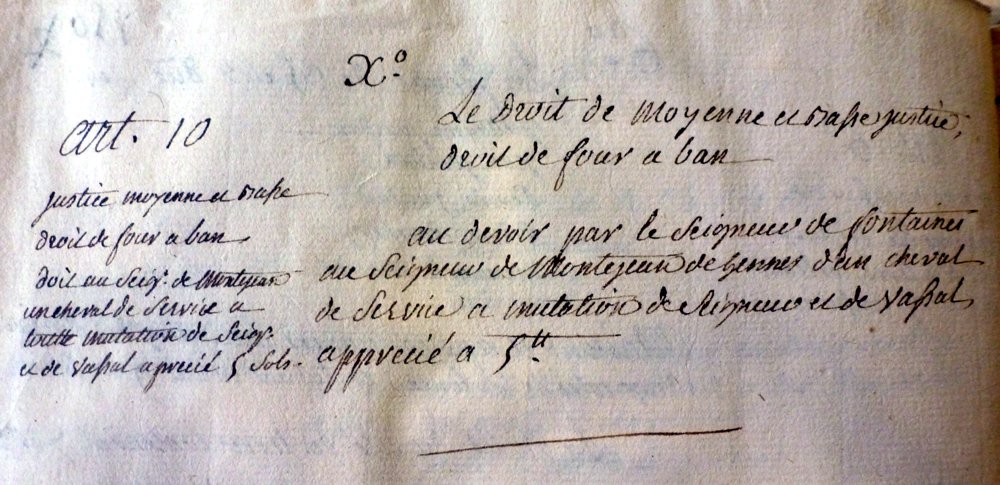 X°.
art. 10
Le Droit de Moyenne et Basse justice,
droit de four a ban
justice moyenne et Basse
droit de four a ban
doit au Seigr. de Montejean
un cheval de Service a
toutte mutation de Seigr.
et de Vassal aprecié 5 Sols.
au devoir par le Seigneur de fontaines
au Seigneur de Montejean de Gennes d'un cheval
de Service a mutation de Seigneur et de Vassal
apprecié a 5 tt